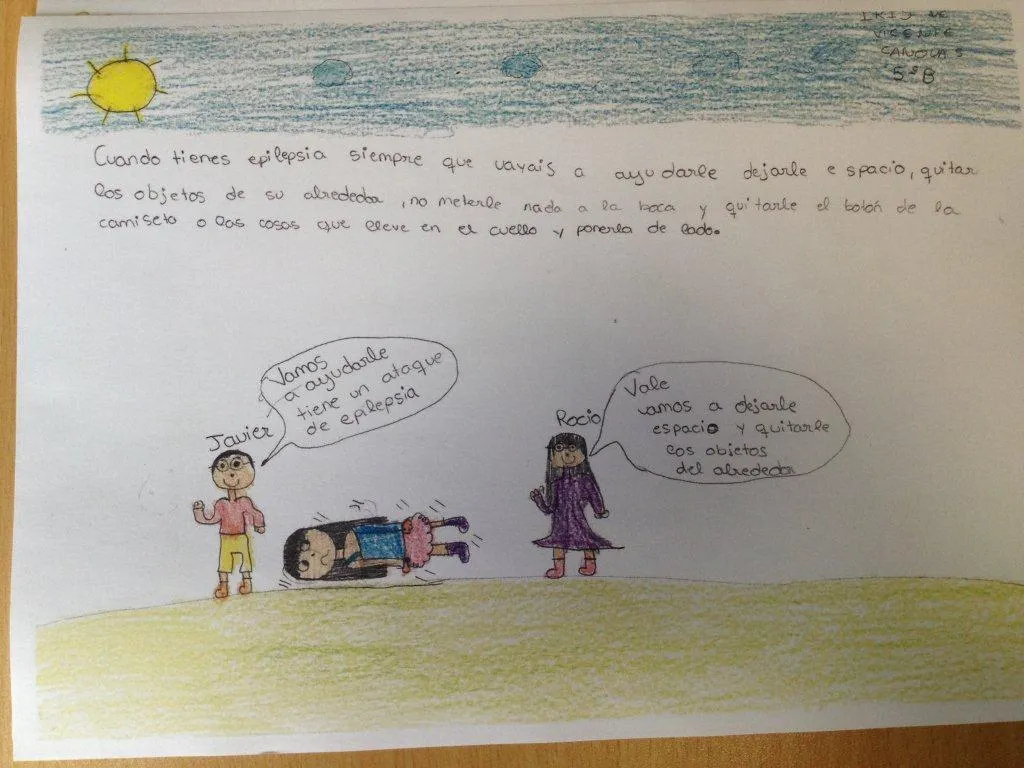 IRIS DE
VICENTE
CANOVAS
5ºB
Cuando tienes epilepsia siempre que vayais a ayudarle dejarle espacio, quitar
los objetos de su alrededor, no meterle nada a la boca y quitarle el botón de la
camiseta o las cosas que lleve en el cuello y ponerla de lado.
Vamos
a ayudarle
tiene un ataque
de epilepsia
Javier
Rocio
Vale
vamos a dejarle
espacio y quitarle
los objetos
del alrededor